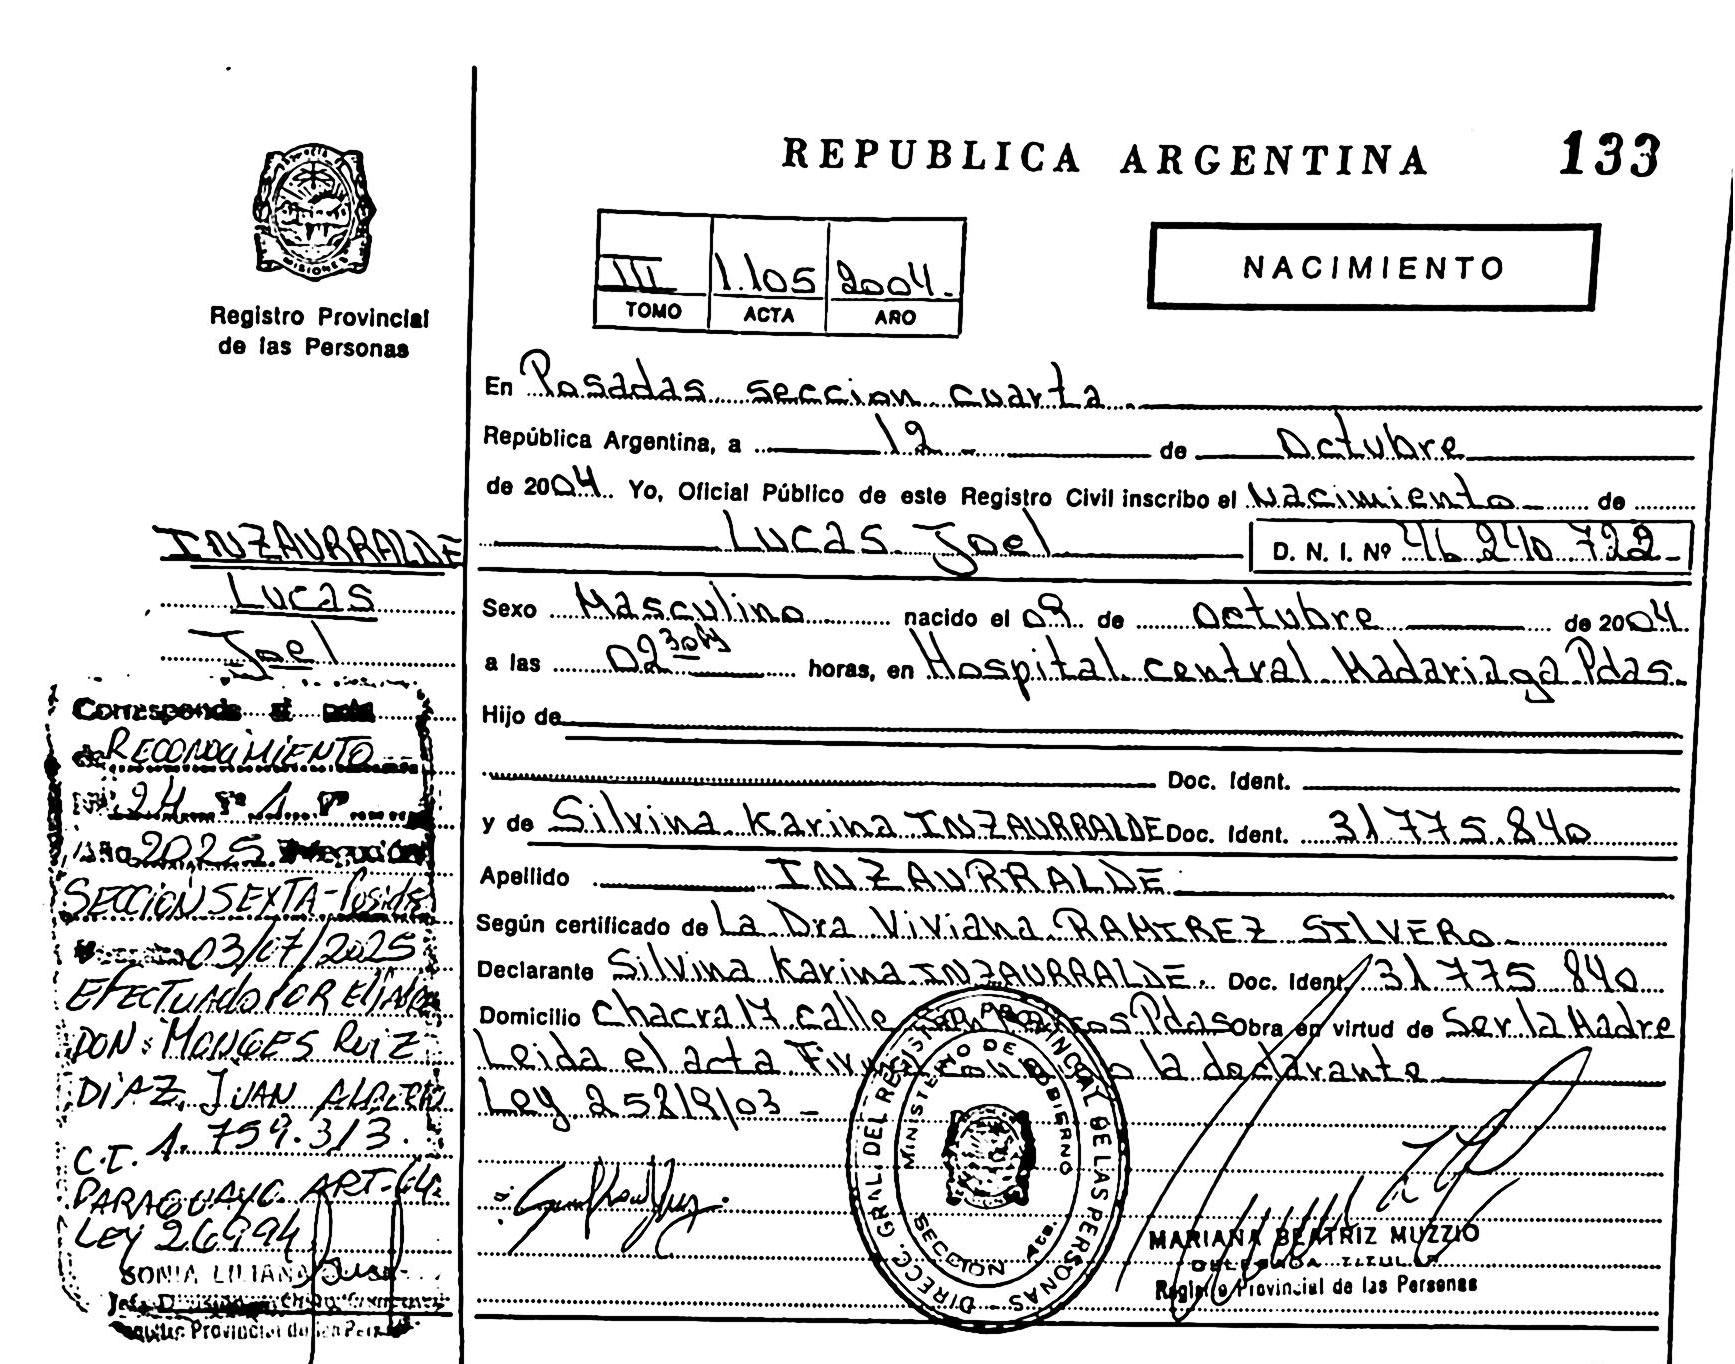 REPUBLICA ARGENTINA 133
III 1.105 2004.
TOMO ACTA AÑO
NACIMIENTO
MISIONES
Registro Provincial
de las Personas
En Posadas seccion cuarta
República Argentina, a 12 de Octubre
de 2004. Yo, Oficial Público de este Registro Civil inscribo el Nacimiento de
Lucas Joel D. N. I. Nº 46.240.722
Sexo Masculino nacido el 09 de octubre de 2004
a las 02 30 horas, en Hospital central Madariaga Pdas.
Hijo de
Doc. Ident.
y de Silvina Karina INZAURRALDE Doc. Ident. 31.775.840
Apellido INZAURRALDE
Según certificado de La Dra Viviana RAMIREZ SILVERO
Declarante Silvina Karina INZAURRALDE. Doc. Ident. 31.775.840
Domicilio chacra 17 calle Pdas Obra en virtud de Ser la Madre
Leida el acta la declarante
Ley 25819/03 -
DIRECC. GRAL. DEL REGISTRO PROVINCIAL DE LAS PERSONAS
MINISTERIO DE GOBIERNO
SECCION 4ta.
MARIANA BEATRIZ MUZZIO
DELEGADA TITULAR
Registro Provincial de las Personas
INZAURRALDE
Lucas
Joel
Corresponde al
de RECONOCIMIENTO
24 Fº 1 Tº
Año 2025
SECCION SEXTA - Posadas
03/07/2025
EFECTUADO POR El
DON: MONGES RUIZ
DIAZ, JUAN ALBERTO
C.I. 1.759.313.
PARAGUAYO. ART-64.
LEY 26994
SONIA LILIANA
Registro Provincial de las Personas